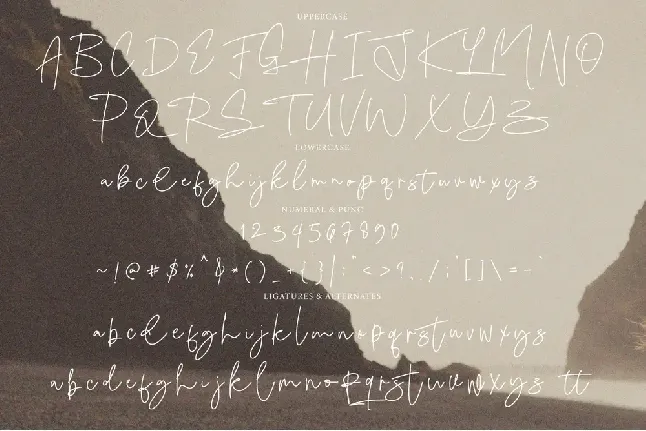 UPPERCASE
ABCDEFGHIJKLMNO
PQRSTUVWXYZ
LOWERCASE
abcdefghijklmnopqrstuvwxyz
NUMERAL & PUNC
1234567890
~!@#$%^&*()_+{}|:"<>?,./;'[]\=-`
LIGATURES & ALTERNATES
abcdefghijklmnopqrstuvwxyz
abcdefghijklmnopqrstuvwxyz tt